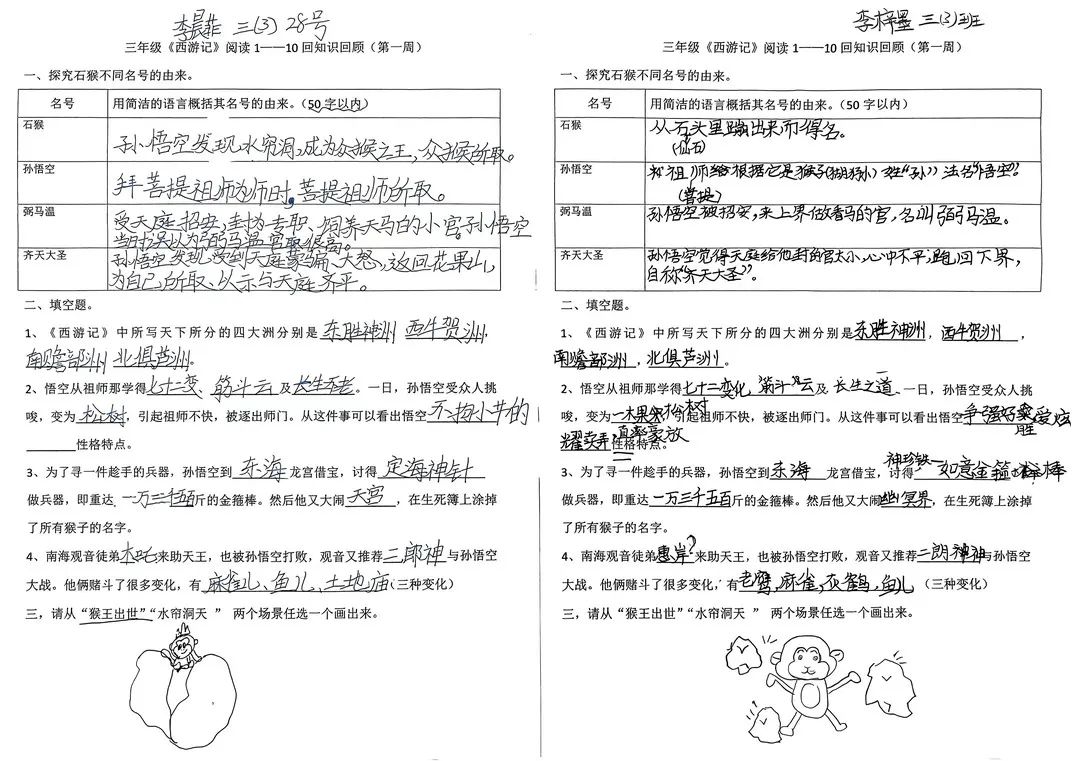 李晨菲 三(3) 28号
三年级《西游记》阅读 1——10 回知识回顾（第一周）
一、探究石猴不同名号的由来。
名号 用简洁的语言概括其名号的由来。（50 字以内）
石猴 孙悟空发现水帘洞,成为众猴之王,众猴所取。
孙悟空 拜菩提祖师为师时,菩提祖师所取。
弼马温 受天庭招安,封为专职、饲养天马的小官。孙悟空
当时误以为弼马温官职很高。
齐天大圣 孙悟空发现受到天庭蒙骗、大怒,返回花果山,
为自己所取、以示与天庭齐平。
二、填空题。
1、《西游记》中所写天下所分的四大洲分别是 东胜神洲 西牛贺洲,
南赡部洲 北俱芦洲。
2、悟空从祖师那学得七十二变、筋斗云及长生不老。一日，孙悟空受众人挑
唆，变为 松树，引起祖师不快，被逐出师门。从这件事可以看出悟空
性格特点。
3、为了寻一件趁手的兵器，孙悟空到 东海 龙宫借宝，讨得 定海神针
做兵器，即重达 一万三千五百斤的金箍棒。然后他又大闹 天宫，在生死簿上涂掉
了所有猴子的名字。
4、南海观音徒弟木吒来助天王，也被孙悟空打败，观音又推荐二郎神与孙悟空
大战。他俩赌斗了很多变化，有 麻雀儿、鱼儿、土地庙（三种变化）
三，请从“猴王出世”“水帘洞天 ” 两个场景任选一个画出来。
李梓墨 三(3)班
三年级《西游记》阅读 1——10 回知识回顾（第一周）
一、探究石猴不同名号的由来。
名号 用简洁的语言概括其名号的由来。（50 字以内）
石猴 从石头里蹦出来而得名。
(仙石)
孙悟空 祖师给根据它是猴子(猢狲)姓“孙”法名“悟空”。
(菩提)
弼马温 孙悟空被招安,来上界做看马的官,名叫弼马温。
齐天大圣 孙悟空觉得天庭给他封的官太小,心中不平,跑回下界,
自称“齐天大圣”。
二、填空题。
1、《西游记》中所写天下所分的四大洲分别是东胜神洲，西牛贺洲，
南赡部洲，北俱芦洲。
2、悟空从祖师那学得七十二变化 筋斗云及 长生之道。一日，孙悟空受众人挑
唆，变为一木果松树引起祖师不快，被逐出师门。从这件事可以看出悟空争强好胜爱炫
耀卖弄,直率豪放性格特点。
3、为了寻一件趁手的兵器，孙悟空到东海 龙宫借宝，讨得神珍铁 如意金箍棒
做兵器，即重达一万三千五百斤的金箍棒。然后他又大闹幽冥界，在生死簿上涂掉
了所有猴子的名字。
4、南海观音徒弟惠岸?来助天王，也被孙悟空打败，观音又推荐二朗神与孙悟空
大战。他俩赌斗了很多变化，有老鹰,麻雀,灰鹤,鱼儿（三种变化）
三，请从“猴王出世”“水帘洞天 ” 两个场景任选一个画出来。